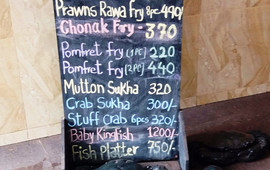 Prawns Rawa Fry 8pc 490/-
Chonak Fry - 370
Pomfret fry (1PC) 220
Pomfret fry (2PC) 440
Mutton Sukha 320
Crab Sukha 300/-
Stuff Crab 6pcs 320/-
Baby Kingfish 1200/-
Fish Platter 750/-